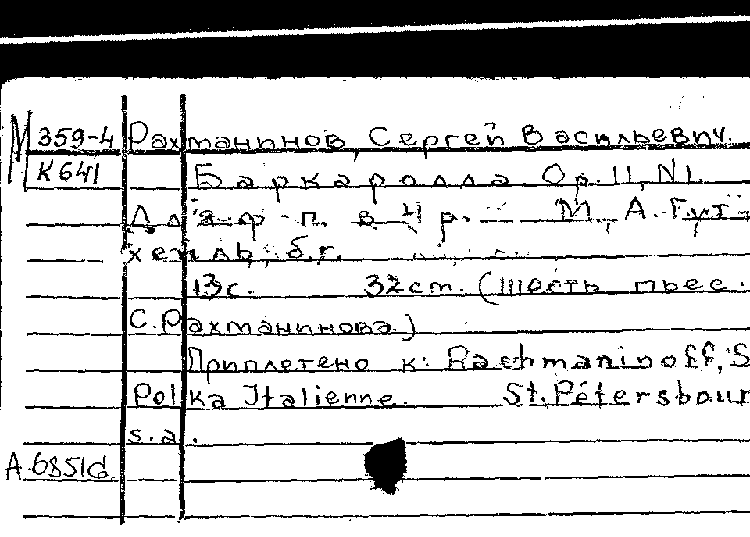 М 359-4 Рахманинов, Сергей Васильевич.
К 641 Баркаролла Op. 11, N1.
Для ф-п. в 4 р. — М., А. Гут-
хейль, б.г.
13с. 32см. (Шесть пьес.
С. Рахманинова)
Приплетено к: Rachmaninoff, S
Polka Italienne. St. Pétersbour
s.a.